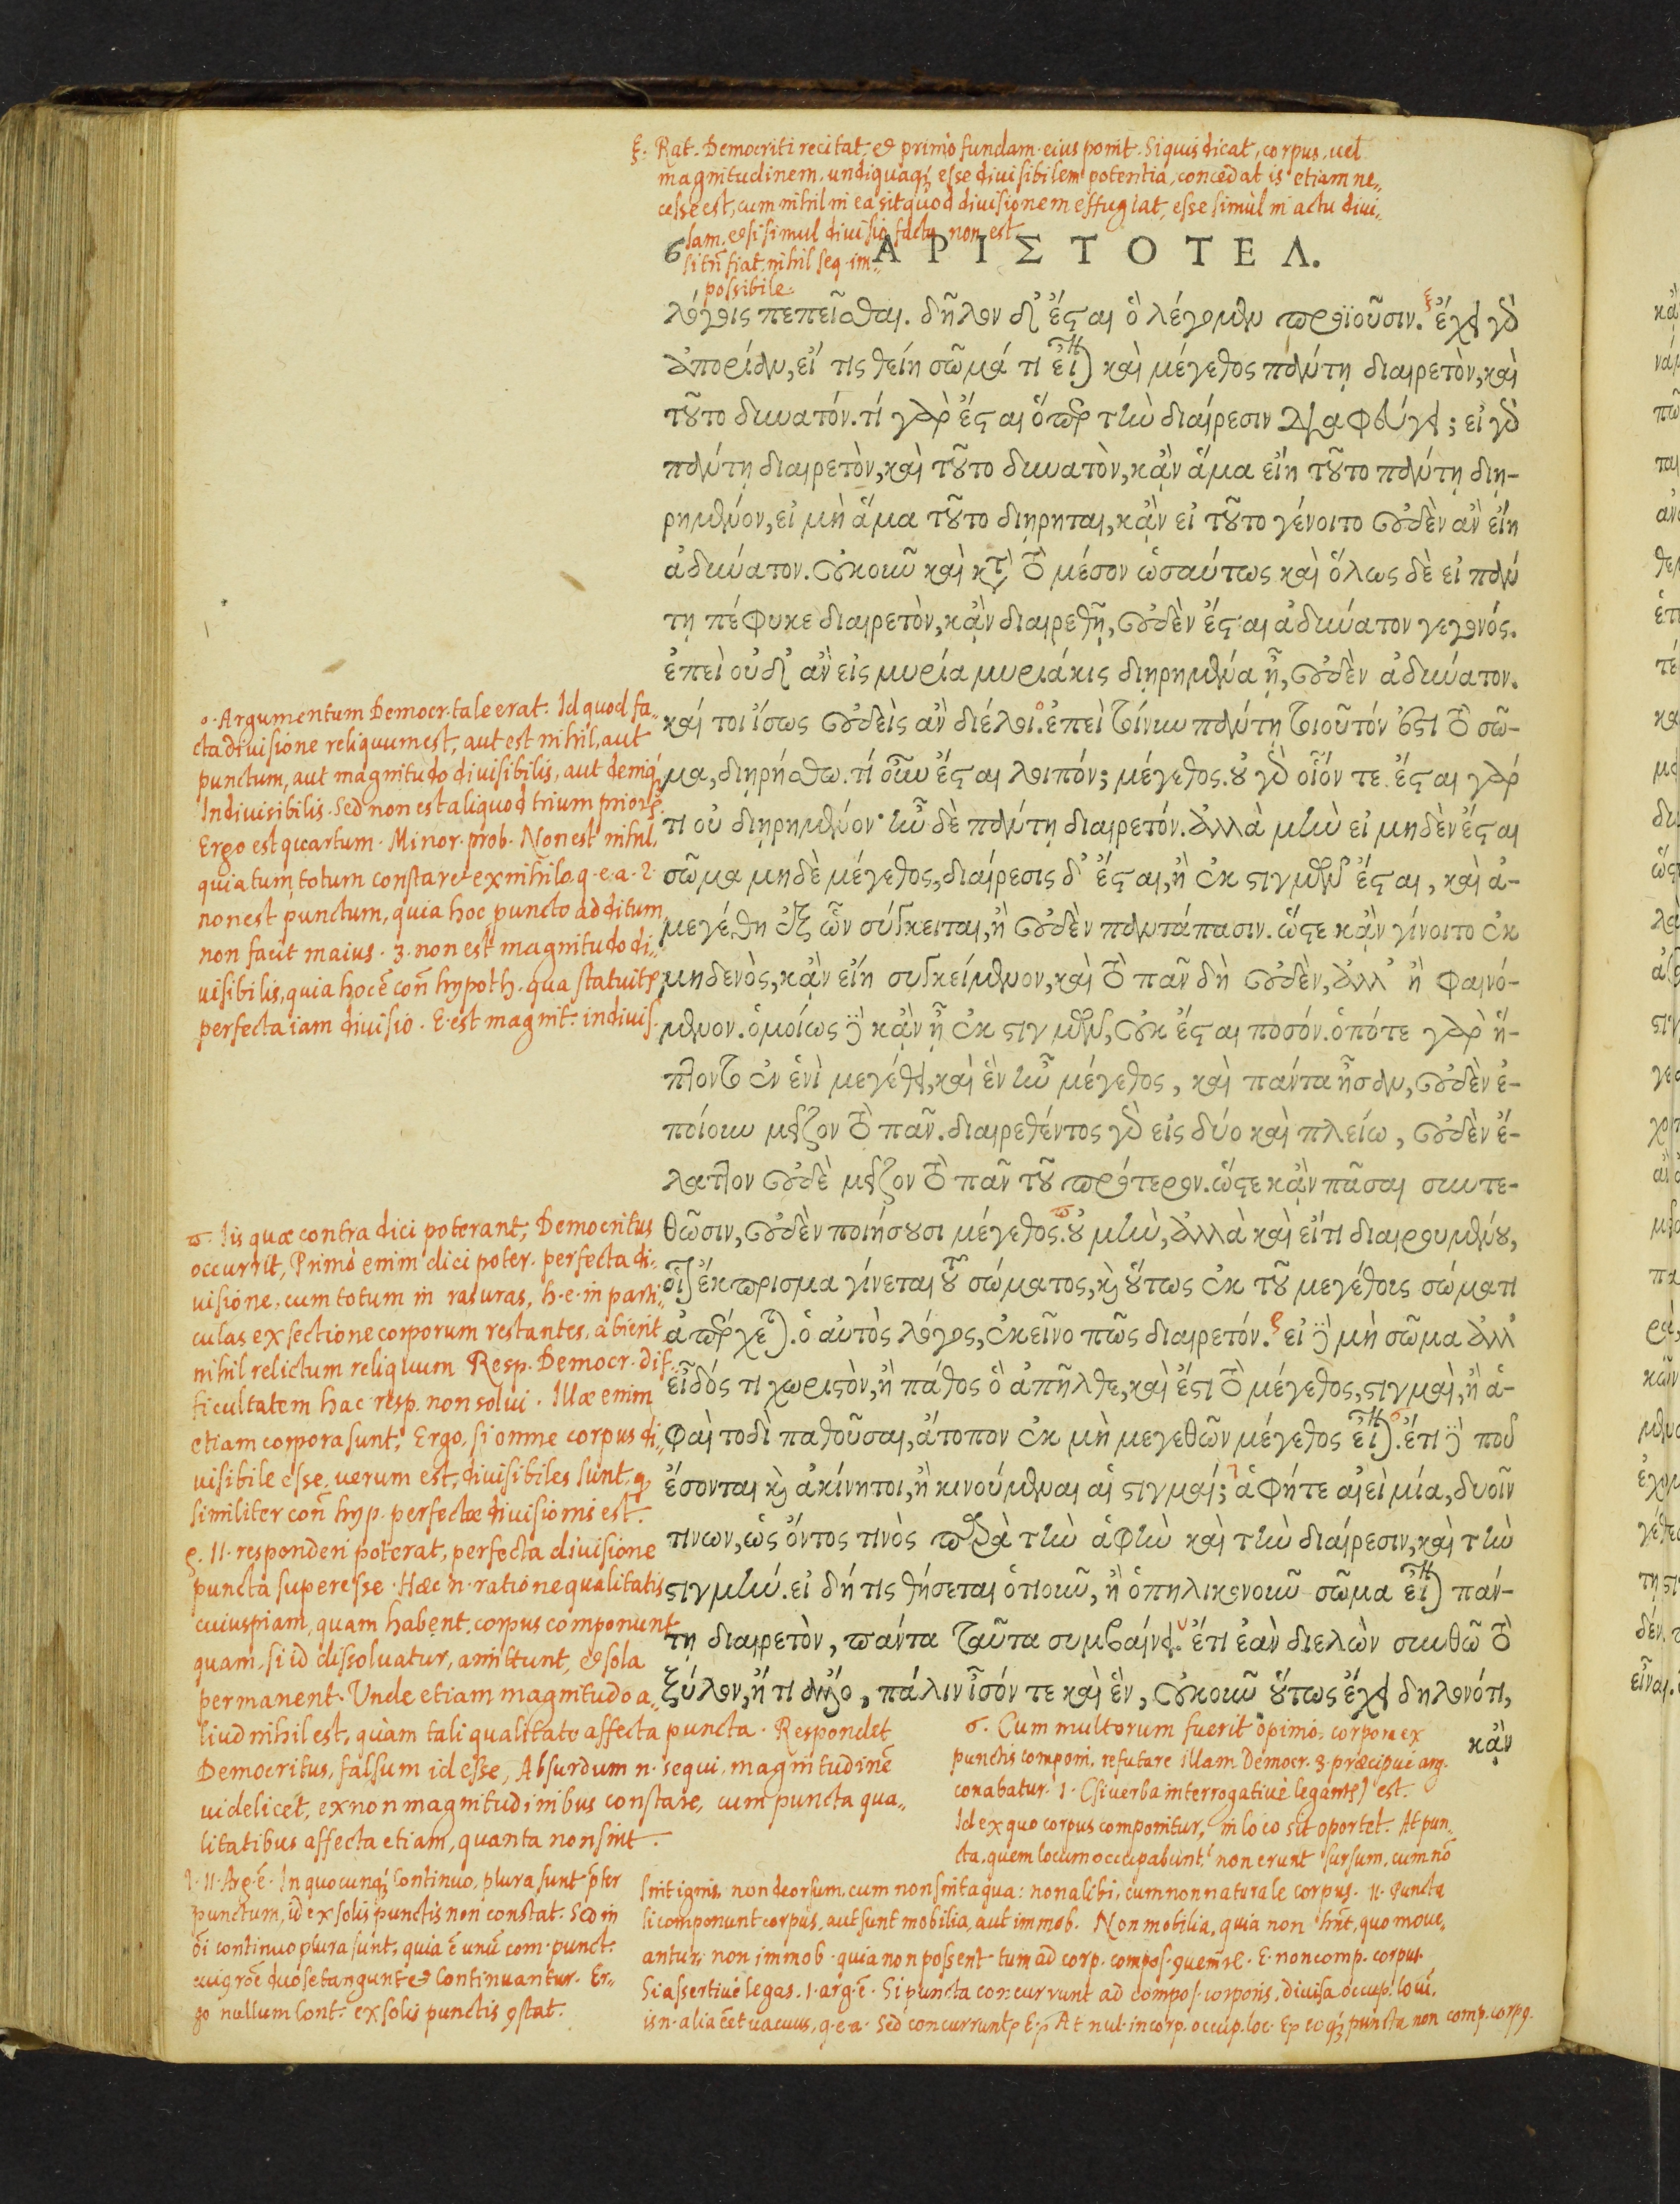 ξ. Rat. Democriti recitat, et primò fundam. eius ponit. Siquis dicat, corpus, uel
magnitudinem, undiquaq; esse diuisibilem potentia, concedat is etiam ne„
cesse est, cum nihil in ea sit quod divisionem effugiat, esse simùl in actu divi„
sam. et si simul divisio facta non est
sitñ fiat, nihil seq. im„
possibile.
6 ΑΡΙΣΤΟΤΕΛ.
λόγοις πεπεῖσθαι. δῆλον δ' ἔσται ὃ λέγομεν προϊοῦσιν. ξ ἔχει γὰρ
ἀπορίαν, εἴ τις θείη σῶμά τι εἶναι καὶ μέγεθος πάντη διαιρετὸν, καὶ
τοῦτο δυνατόν. τί γὰρ ἔσται ὅπερ τὴν διαίρεσιν διαφεύγει; εἰ γὰρ
πάντη διαιρετὸν, καὶ τοῦτο δυνατὸν, κἂν ἅμα εἴη τοῦτο πάντη διῃ-
ρημένον, εἰ μὴ ἅμα τοῦτο διῄρηται, κἂν εἰ τοῦτο γένοιτο οὐδὲν ἂν εἴη
ἀδύνατον. οὐκοῦν καὶ κατὰ τὸ μέσον ὡσαύτως καὶ ὅλως δὲ εἰ πάν
τη πέφυκε διαιρετὸν, κἂν διαιρεθῇ, οὐδὲν ἔσται ἀδύνατον γεγονός.
ἐπεὶ οὐδ' ἂν εἰς μυρία μυριάκις διῃρημένα ᾖ, οὐδὲν ἀδύνατον.
καί τοι ἴσως οὐδεὶς ἂν διέλοι. ο ἐπεὶ τοίνυν πάντη τοιοῦτόν ἐστι τὸ σῶ-
μα, διῃρήσθω. τί οὖν ἔσται λοιπόν; μέγεθος. οὐ γὰρ οἷόν τε. ἔσται γάρ
τι οὐ διῃρημένον· ἦν δὲ πάντη διαιρετόν. ἀλλὰ μὴν εἰ μηδὲν ἔσται
σῶμα μηδὲ μέγεθος, διαίρεσις δ' ἔσται, ἢ ἐκ στιγμῶν ἔσται, καὶ ἀ-
μεγέθη ἐξ ὧν σύγκειται, ἢ οὐδὲν παντάπασιν. ὥστε κἂν γίνοιτο ἐκ
μηδενὸς, κἂν εἴη συγκείμενον, καὶ τὸ πᾶν δὴ οὐδὲν, ἀλλ' ἢ φαινό-
μενον. ὁμοίως δὲ κἂν ᾖ ἐκ στιγμῶν, οὐκ ἔσται ποσόν. ὁπότε γὰρ ἥ-
πτοντο ἐν ἑνὶ μεγέθει, καὶ ἓν ἦν μέγεθος, καὶ πάντα ἦσαν, οὐδὲν ἐ-
ποίουν μεῖζον τὸ πᾶν. διαιρεθέντος γὰρ εἰς δύο καὶ πλείω, οὐδὲν ἔ-
λαττον οὐδὲ μεῖζον τὸ πᾶν τοῦ πρότερον. ὥστε κἂν πᾶσαι συντε-
θῶσιν, οὐδὲν ποιήσουσι μέγεθος. ϖ οὐ μὴν, ἀλλὰ καὶ εἴ τι διαιρουμένου,
οἷον ἔκπρισμα γίνεται τοῦ σώματος, καὶ οὕτως ἐκ τοῦ μεγέθους σῶμά τι
ἀπέρχεται. ὁ αὐτὸς λόγος, ἐκεῖνο πῶς διαιρετόν. ς εἰ δὲ μὴ σῶμα ἀλλ'
εἶδός τι χωριστὸν, ἢ πάθος ὃ ἀπῆλθε, καὶ ἔστι τὸ μέγεθος, στιγμαὶ, ἢ ἁ-
φαὶ τοδὶ παθοῦσαι, ἄτοπον ἐκ μὴ μεγεθῶν μέγεθος εἶναι. σ ἔτι δὲ ποῦ
ἔσονται καὶ ἀκίνητοι, ἢ κινούμεναι αἱ στιγμαί; τ ἁφή τε αἰεὶ μία, δυοῖν
τινων, ὡς ὄντος τινὸς παρὰ τὴν ἁφὴν καὶ τὴν διαίρεσιν, καὶ τὴν
στιγμήν. εἰ δή τις θήσεται ὁτιοῦν, ἢ ὁπηλικονοῦν σῶμα εἶναι πάν-
τη διαιρετὸν, πάντα ταῦτα συμβαίνει. υ ἔτι ἐὰν διελὼν συνθῶ τὸ
ξύλον, ἤ τι ἄλλο, πάλιν ἶσόν τε καὶ ἓν, οὐκοῦν οὕτως ἔχει δηλονότι,
κἂν
ο. Argumentum Democr. tale erat. Id quod fa„
cta divisione reliquum est, aut est nihil, aut
punctum, aut magnitudo divisibilis, aut deniq;
Indivisibilis. Sed non est aliquod trium prior.
Ergo est quartum. Minor. prob. Non est nihil,
quia tum totum constaret ex nihilo. q. e. a. 2.
non est punctum, quia hoc puncto additum
non facit maius. 3. non est magnitudo di„
visibilis, quia hoc ē coñ hypoth. qua statuitr
perfecta iam divisio. E. est magnit. indivis.
ϖ. Iis quæ contra dici poterant, Democritus
occurrit, Primò enim dici poter. perfecta di„
visione, cum totum in rasuras, h. e. in parti„
culas ex sectione corporum restantes, abierit
nihil relictum reliquum Resp. Democr. dif„
ficultatem hac resp. non solui. Illæ enim
etiam corpora sunt, Ergo, si omne corpus di„
visibile esse, verum est, divisibiles sunt, q
similiter coñ hyp. perfectæ divisionis est.
ς. II. responderi poterat, perfecta divisione
puncta superesse. Hæc n. ratione qualitatis
cuiuspiam, quam habent, corpus componunt
quam, si id dissoluatur, amittunt, et sola
permanent. Unde etiam magnitudo a„
liud nihil est, quàm tali qualitate affecta puncta. Respondet
Democritus, falsum id esse, Absurdum n. sequi, magnitudinē
videlicet, ex non magnitudinibus constare, cum puncta qua„
litatibus affecta etiam, quanta non sint.
σ. Cum multorum fuerit opinio, corpora ex
punctis componi, refutare illam Democr. 3. præcipuè arg.
conabatur. 1. (si verba interrogativè legantr) est.
Id ex quo corpus componitur, in loco sit oportet. At pun„
cta, quem locum occupabunt? non erunt sursum, cum nō
sint ignis, non deorsum, cum non sint aqua: non alibi, cum non naturale corpus. II. Puncta
si componunt corpus, aut sunt mobilia, aut immob. Non mobilia, quia non hñt, quo move„
antur: non immob. quia non possent tum ad corp. compos. E. non comp. corpus
Si assertivè legas. 1. arg. ē. Si puncta concurrunt ad compos. corporis, divisa occup. locū.
is n. alia ēēt vacuus, q. e. a. Sed concurrunt At nul. incorp. occup. loc. puncta non comp. corpq.
τ. II. Arg. ē. In quocunq; continuo, plura sunt pter
punctum, id ex solis punctis non constat. Sed in
ōi continuo plura sunt, quia ē unū com. punct.
cuiq rōe duo se tangunt et continuantur. Er„
go nullum cont. ex solis punctis qstat.